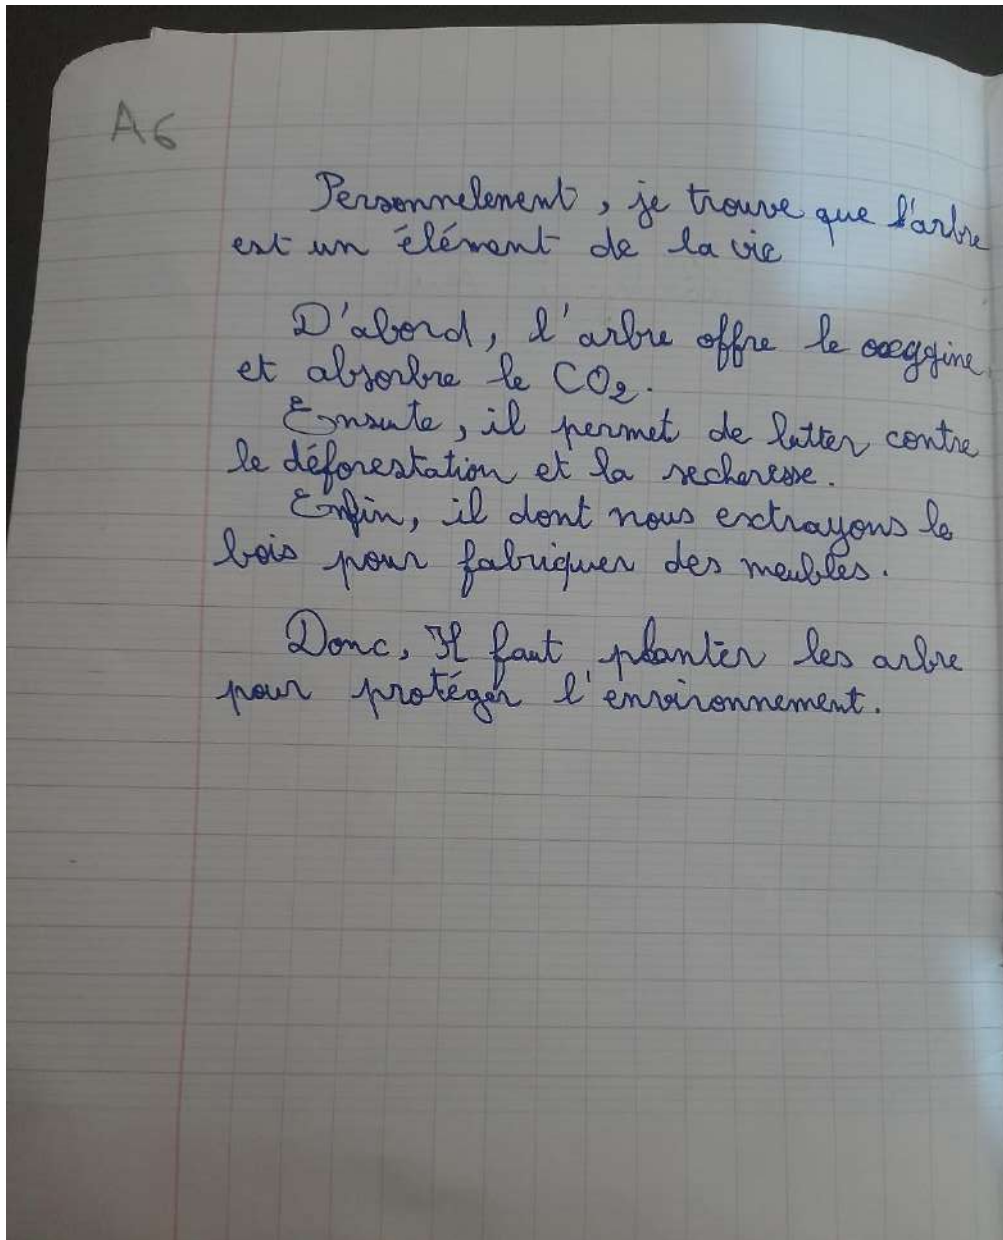 A6
Personnelement, je trouve que l'arbre
est un élément de la vie
D'abord, l'arbre offre le oxeggine
et absorbre le CO₂.
Ensuite, il permet de lutter contre
le déforestation et la secheresse.
Enfin, il dont nous exctrayons le
bois pour fabriquer des meubles.
Donc, Il faut planter les arbre
pour protéger l'environnement.